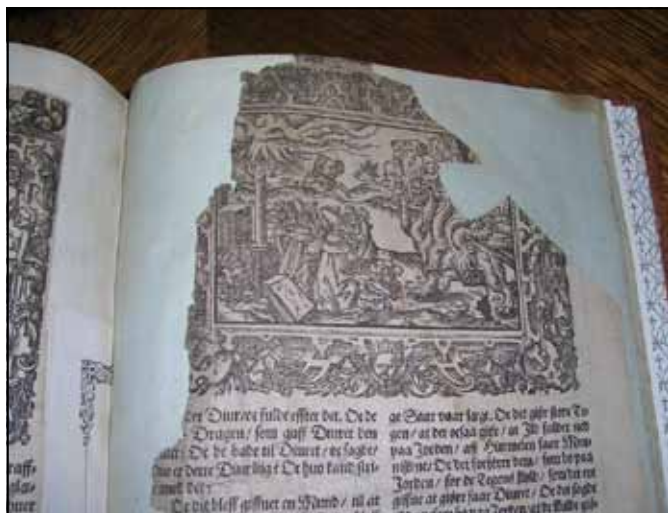 raff-
gla-
nuer
der Diur/oc fulde effter det. Oc de
Dragen/ som gaff Diuret den
Oc de bade til Diuret/ oc sagde/
Huo er dette Diur lig? Oc huo kand
met det?
Oc det bleff giffuet en Mund/ til at
ge Saar vaar lægt. Oc det giør store Te-
gen/ at det ocsaa giør/ at Ild falder ned
paa Jorden/ aff Himmelen faar Men-
niskene/ Oc det forfører dem/ som bo paa
Jorden/ for de Tegens skyld/ som det er
giffuet at giøre faar Diuret/ Oc det sagde
paa Jorden/ at de skulle giø-